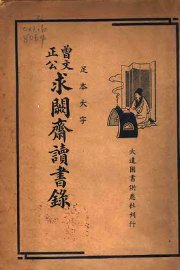 足本大字
曾文正公
求闕齋讀書錄
大達圖書供應社刊行